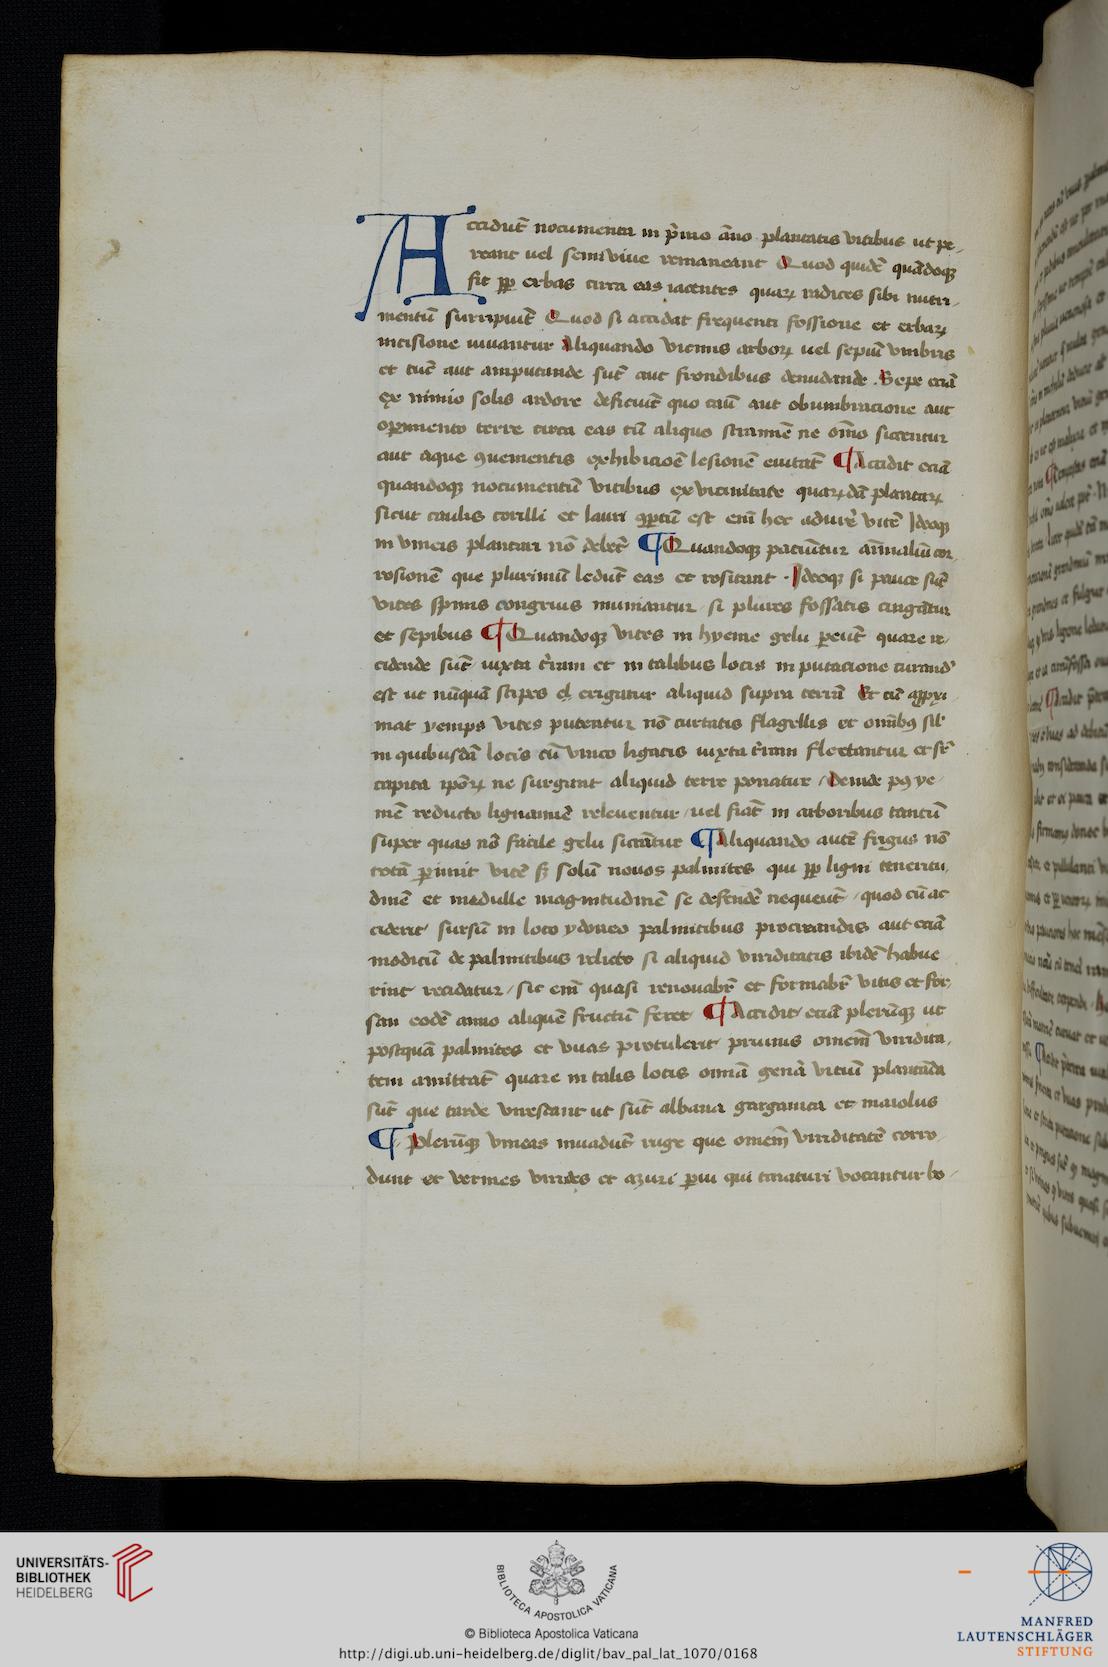 Accidūt nocumenta in p̄mo āno plantatis vitibus ut pe-
reant vel semivive remaneant Quod quidē quādoqȝ
fit ꝓp erbas circa eas iacentes quarꝝ radices sibi nutri-
mentū surripiūt Quod si accidat frequenti fossione et erbarꝝ
incisione iuvantur Aliquando vicinis arborꝝ vel sepiū umbris
et tūc aut amputande sūt aut frondibus denudande . Sepe eciā
ex nimio solis ardore deficiūt quo casu aut obumbracione aut
operimento terre circa eas cū aliquo stramīe ne om̄o siccentur
aut aque ꝯvenientis exhibicioē lesionē evitāt ¶ Accidit eciā
quandoqȝ nocumentū vitibus ex vicinitate quarꝝdā plantarꝝ
sicut caulis corilli et lauri ꝯꝑtū est em̄ hec adurē vitē Ideoqȝ
in vineis plantari nō debēt ¶ Quandoqȝ paciūtur aīmaliū cor
rosionē que plurimū ledūt eas et rosirant . Ideoqȝ si pauce sūt
vites spinis congruis muniantur / si plures fossatis cingātur
et sepibus ¶ Quandoqȝ vites in hyeme gelu pereūt quare re-
cidende sūt iuxta t̄ram et in talibus locis in putacione curand
est ut nūquā stipes el erigatur aliquid supra terrā Et cū apꝓxi
mat yemps vites putentur nō curtatis flagellis et omībȝ sil'
in quibusdā locis cū vinco ligatis iuxta t̄ram flectantur et sr̄
capita ipōrꝝ ne surgant aliquid terre ponatur / Deinde pȝ ye-
mē reducto lignamīe releventur / vel fiāt in arboribus tantū
super quas nō facile gelu siccātur ¶ Aliquando autē frigus nō
totā perimit vitē sȝ solū novos palmites qui ꝓp ligni teneritu-
dinē et medulle magnitudinē se defendē nequeūt / quod cū ac
ciderit sursū in loco ydoneo palmitibus procreandis aut eciā
modicū de palmitibus relicto si aliquid viriditatis ibidē habue
rint recidatur / sic em̄ quasi renovabr̄ et formabr̄ vitis et for-
san eodē anno aliquē fructū feret ¶ Accidit eciā plerūqȝ ut
postquā palmites et uvas protulerit pruinis omnem viridita-
tem amittāt quare in talis locis omīa genā vitiū plantāda
sūt que tarde virescant ut sūt albana garganica et maiolus
¶ Plerūqȝ vineas invadūt ruge que omnem viriditatē corro-
dunt et vermes virides et azuri pervi qui taraturi vocantur bo-
UNIVERSITÄTS-
BIBLIOTHEK
HEIDELBERG
BIBLIOTECA APOSTOLICA VATICANA
© Biblioteca Apostolica Vaticana
http://digi.ub.uni-heidelberg.de/diglit/bav_pal_lat_1070/0168
MANFRED
LAUTENSCHLÄGER
STIFTUNG